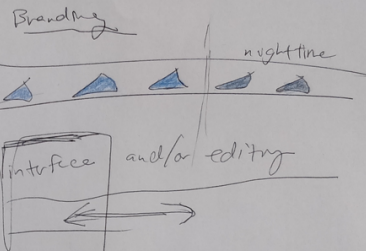 Branding
nughttime
interface and/or editing